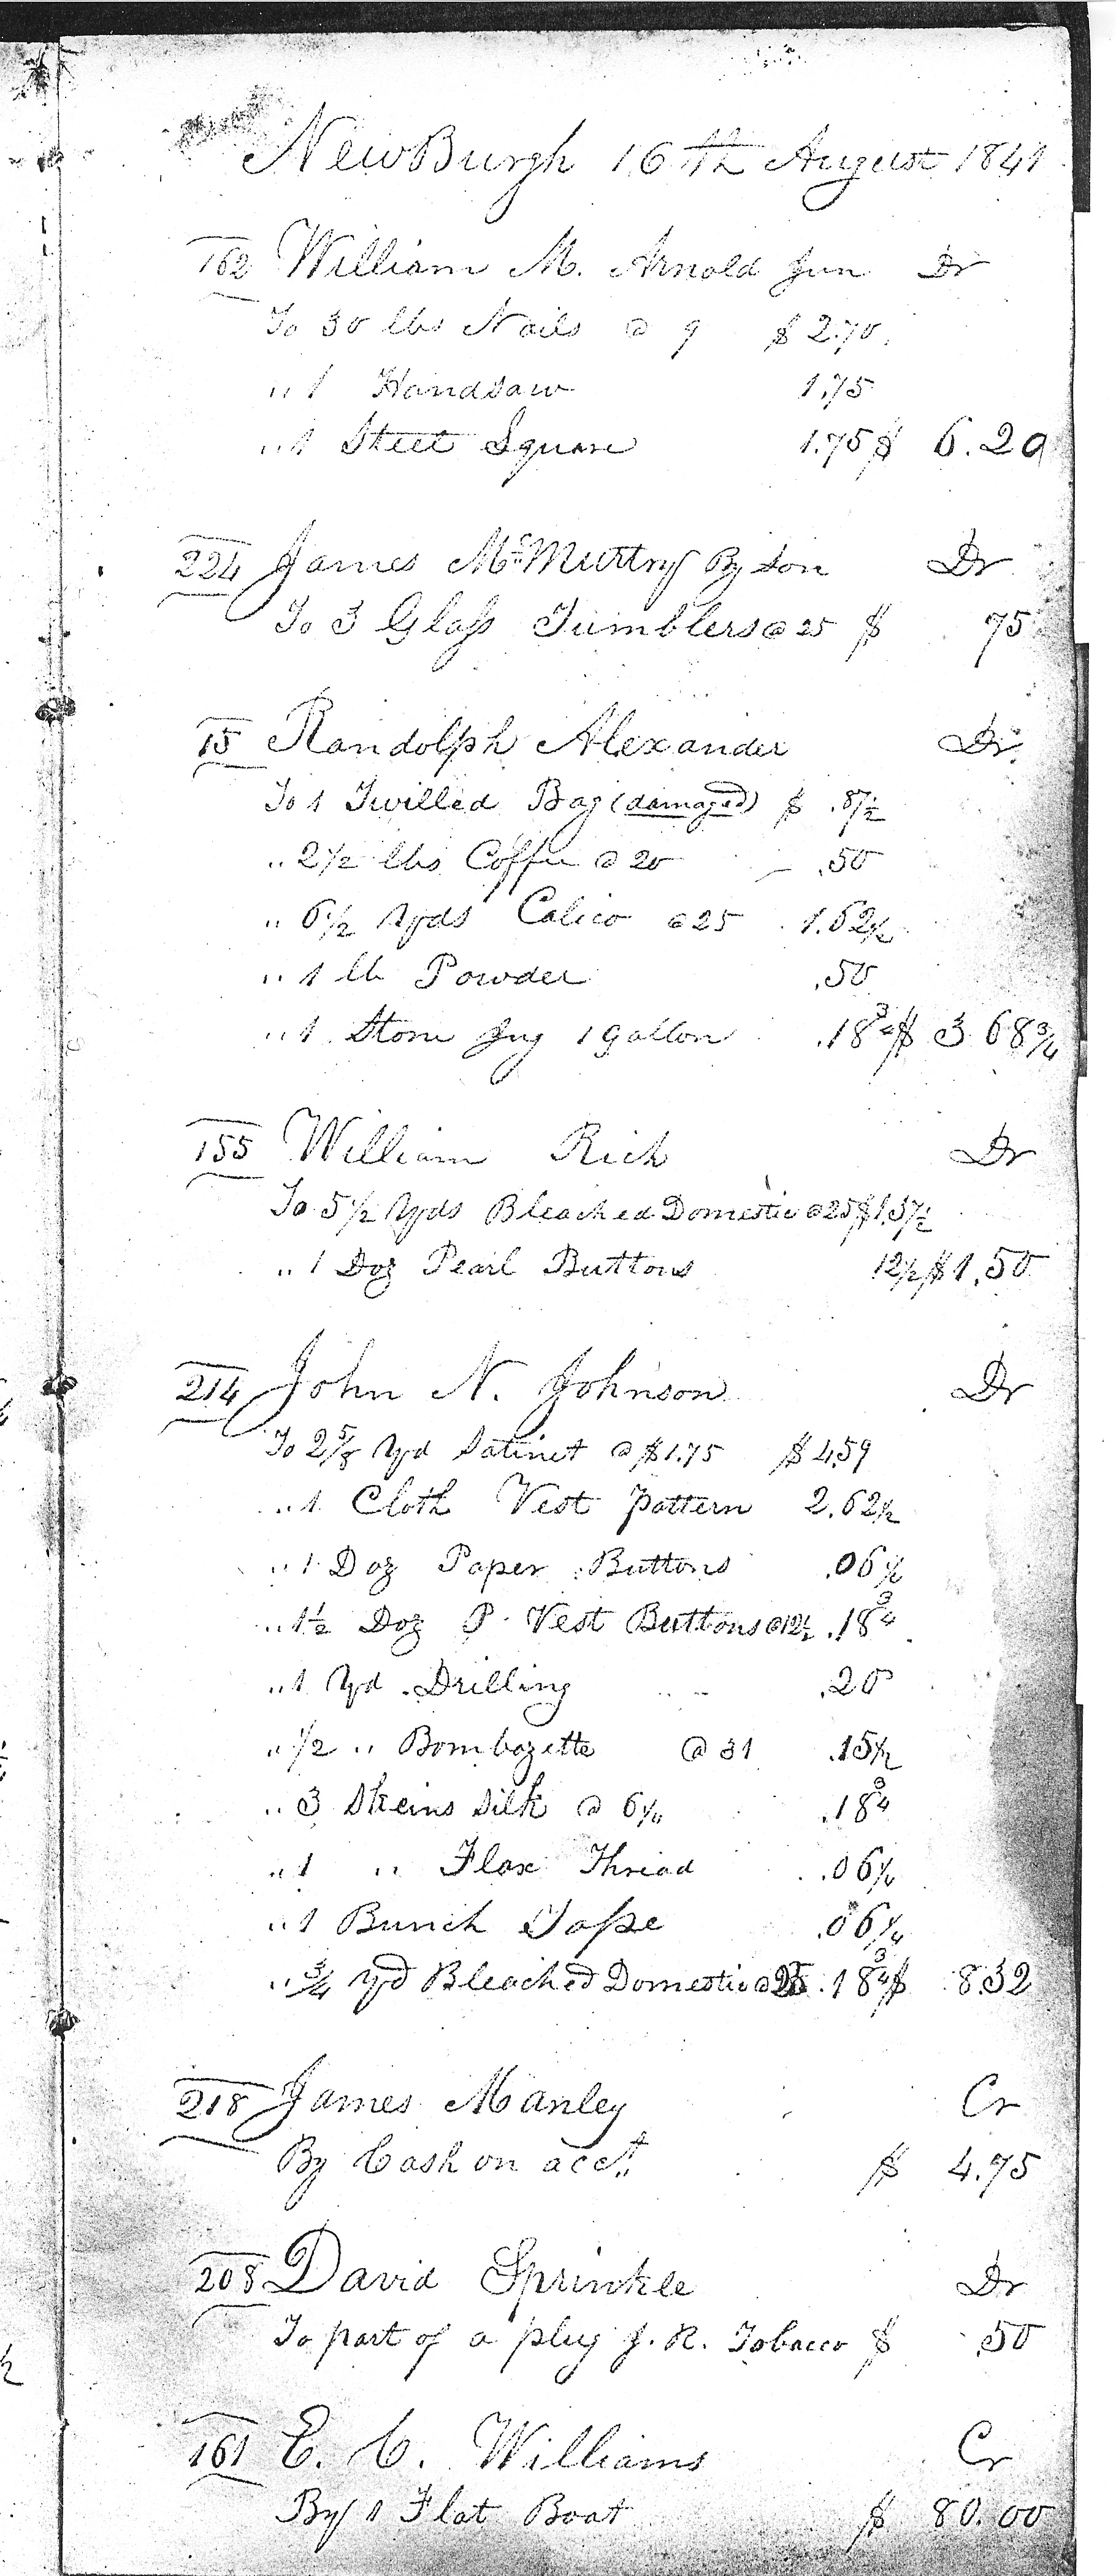 NewBurgh 16th August 1841
162 William M. Arnold Jun Dr
To 30 lbs Nails @ 9 $ 2.70
" 1 Handsaw 1.75
" 1 Steel Square 1.75 $ 6.20
224 James McMurtry By Son Dr
To 3 Glass Tumblers @ 25 $ 75
15 Randolph Alexander Dr
To 1 Twilled Bag (damaged) $ .87½
" 2½ lbs Coffee @ 20 .50
" 6½ Yds Calico @ 25 1.62½
" 1 lb Powder .50
" 1 Stone Jug 1 Gallon .18¾ $ 3 68¾
155 William Rich Dr
To 5½ Yds Bleached Domestic @ 25 $ 1.37½
" 1 Doz Pearl Buttons 12½ $ 1.50
214 John N. Johnson Dr
To 2⅝ Yd Satinet @ $1.75 $ 4.59
" 1 Cloth Vest Pattern 2.62½
" 1 Doz Paper Buttons .06¼
" 1½ Doz P. Vest Buttons @ 12½ .18¾
" 1 Yd Drilling .20
" ½ " Bombazette @ 31 .15½
" 3 Skeins Silk @ 6¼ .18¾
" 1 " Flax Thread .06¼
" 1 Bunch Tape .06¼
" ¾ Yd Bleached Domestic @ 25 .18¾ $ 8.32
218 James Manley Cr
By Cash on acct. $ 4.75
208 David Sprinkle Dr
To part of a plug J. R. Tobacco $ .50
161 E. C. Williams Cr
By 1 Flat Boat $ 80.00